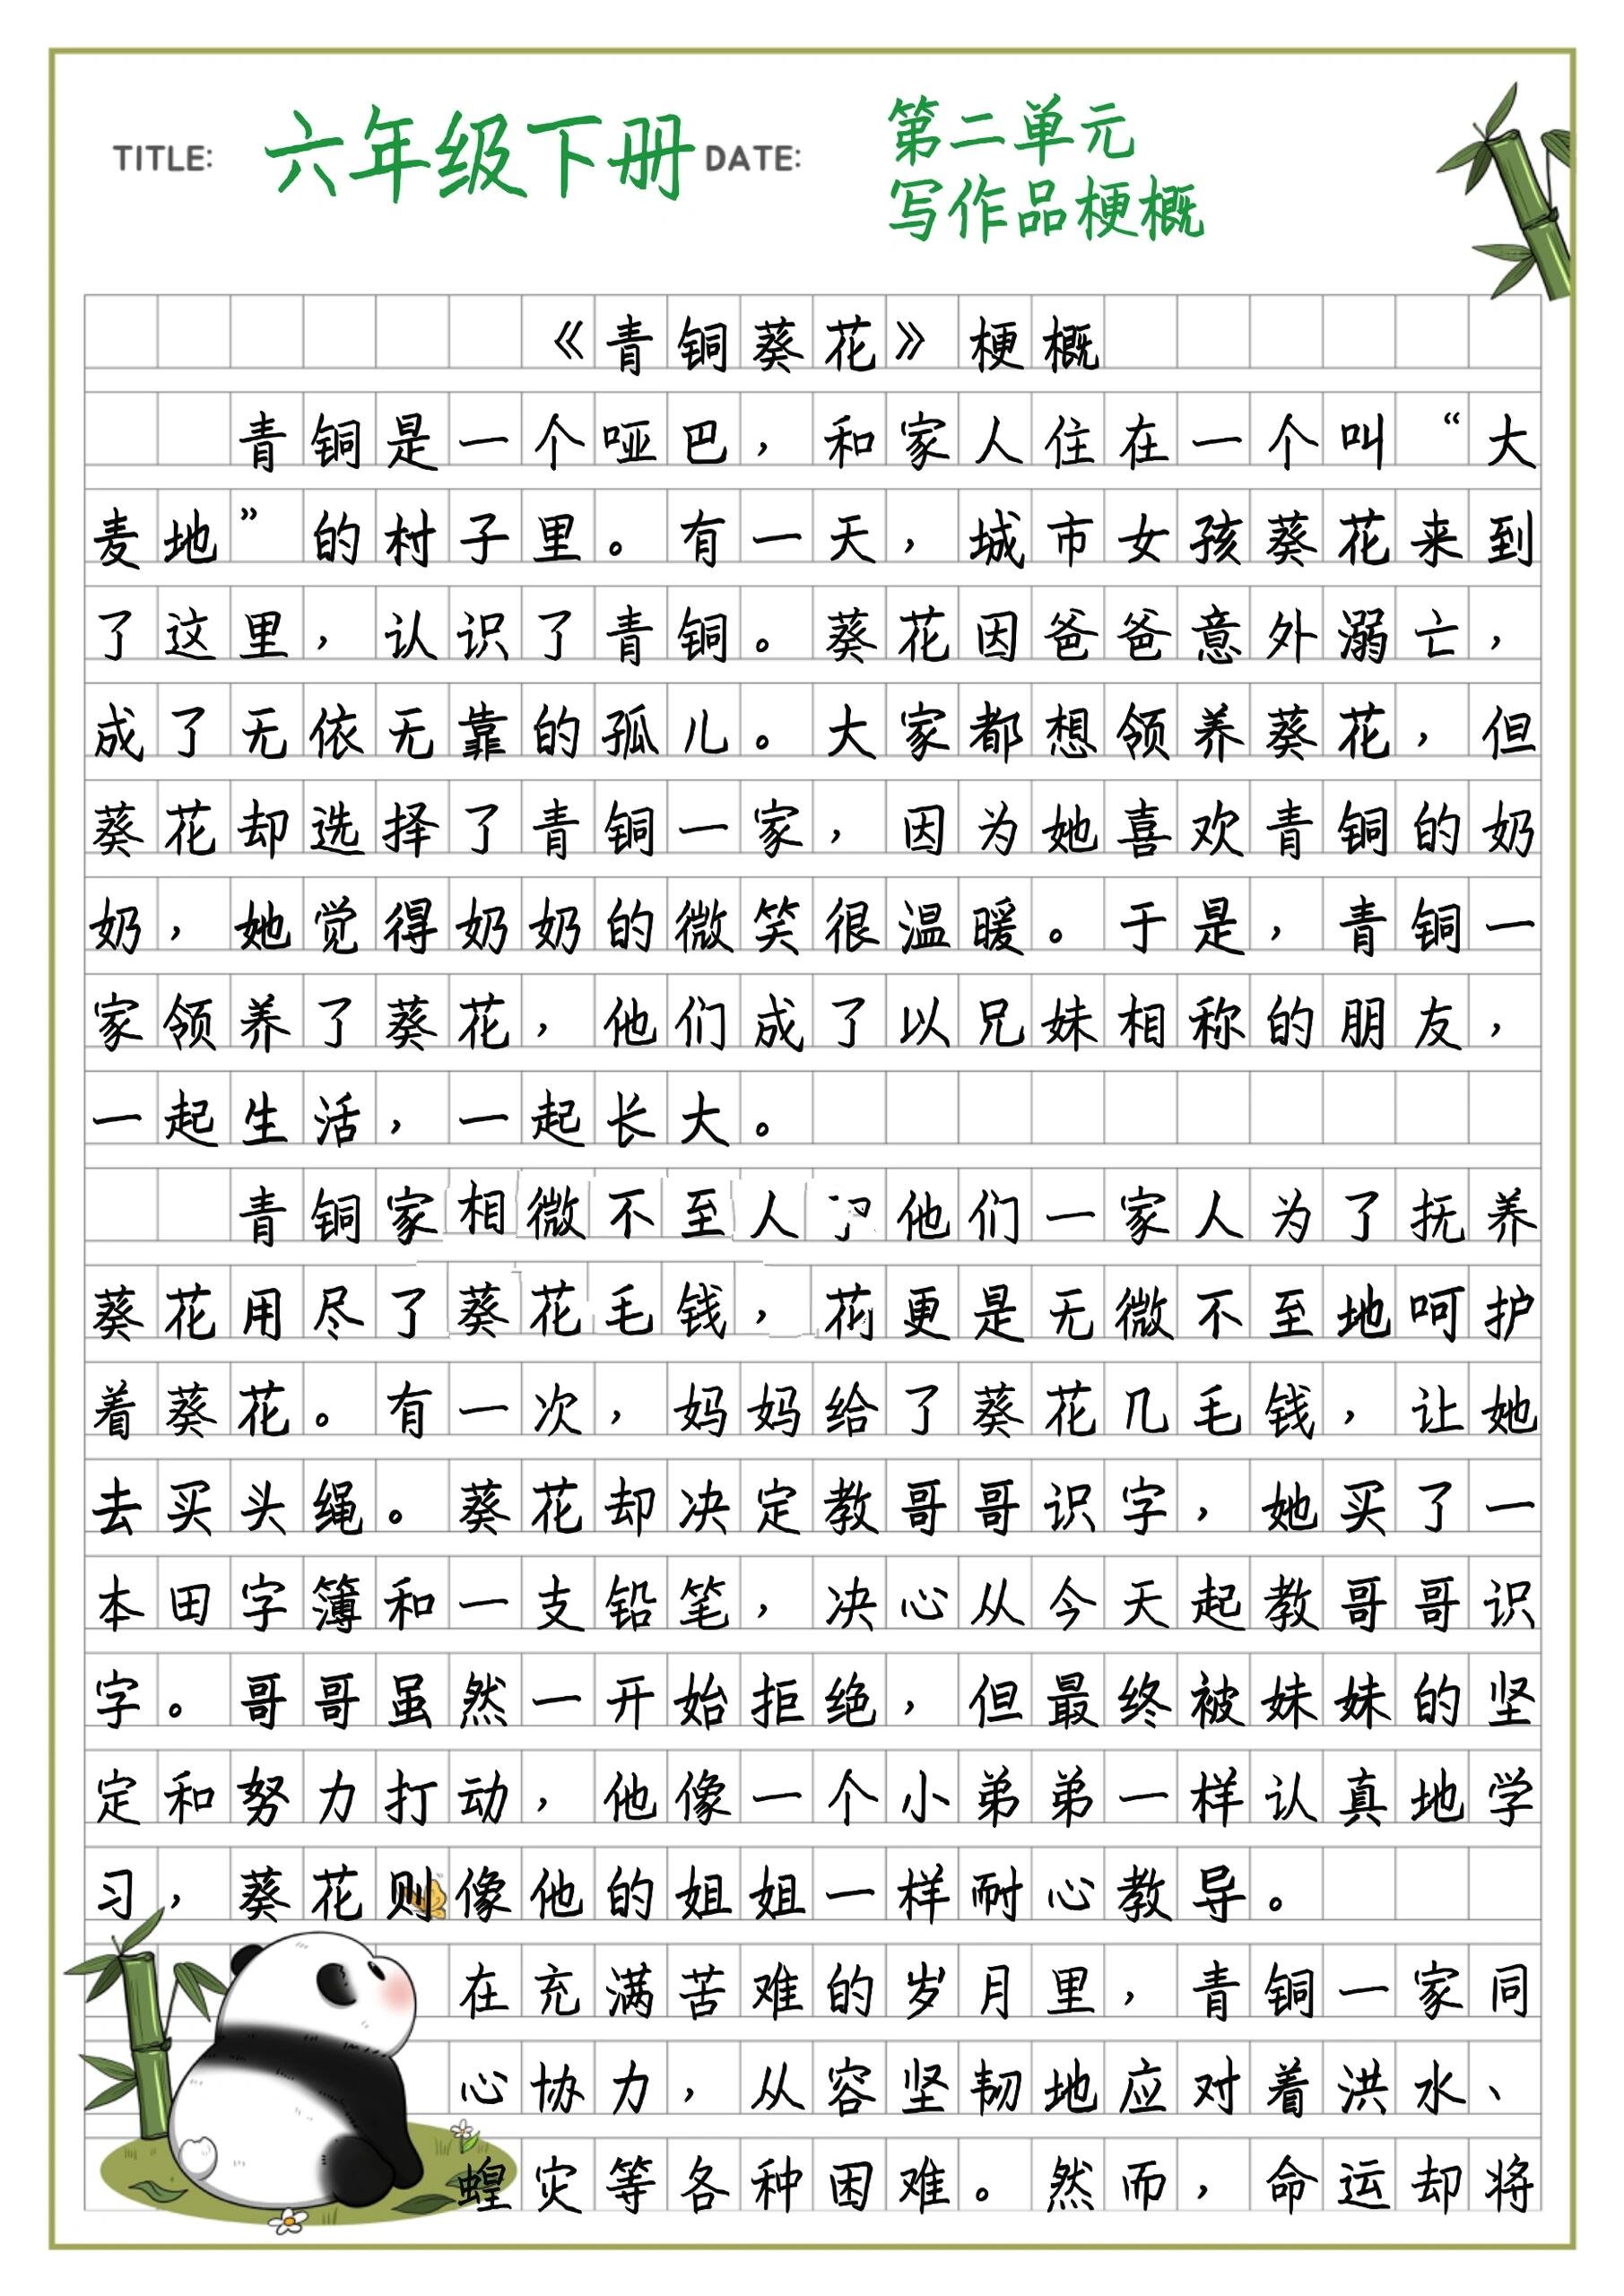 TITLE: 六年级下册 DATE: 第二单元
写作品梗概
《青铜葵花》梗概
青铜是一个哑巴，和家人住在一个叫“大
麦地”的村子里。有一天，城市女孩葵花来到
了这里，认识了青铜。葵花因爸爸意外溺亡，
成了无依无靠的孤儿。大家都想领养葵花，但
葵花却选择了青铜一家，因为她喜欢青铜的奶
奶，她觉得奶奶的微笑很温暖。于是，青铜一
家领养了葵花，他们成了以兄妹相称的朋友，
一起生活，一起长大。
青铜家相微不至人他们一家人为了抚养
葵花用尽了葵花毛钱，花更是无微不至地呵护
着葵花。有一次，妈妈给了葵花几毛钱，让她
去买头绳。葵花却决定教哥哥识字，她买了一
本田字簿和一支铅笔，决心从今天起教哥哥识
字。哥哥虽然一开始拒绝，但最终被妹妹的坚
定和努力打动，他像一个小弟弟一样认真地学
习，葵花则像他的姐姐一样耐心教导。
在充满苦难的岁月里，青铜一家同
心协力，从容坚韧地应对着洪水、
蝗灾等各种困难。然而，命运却将